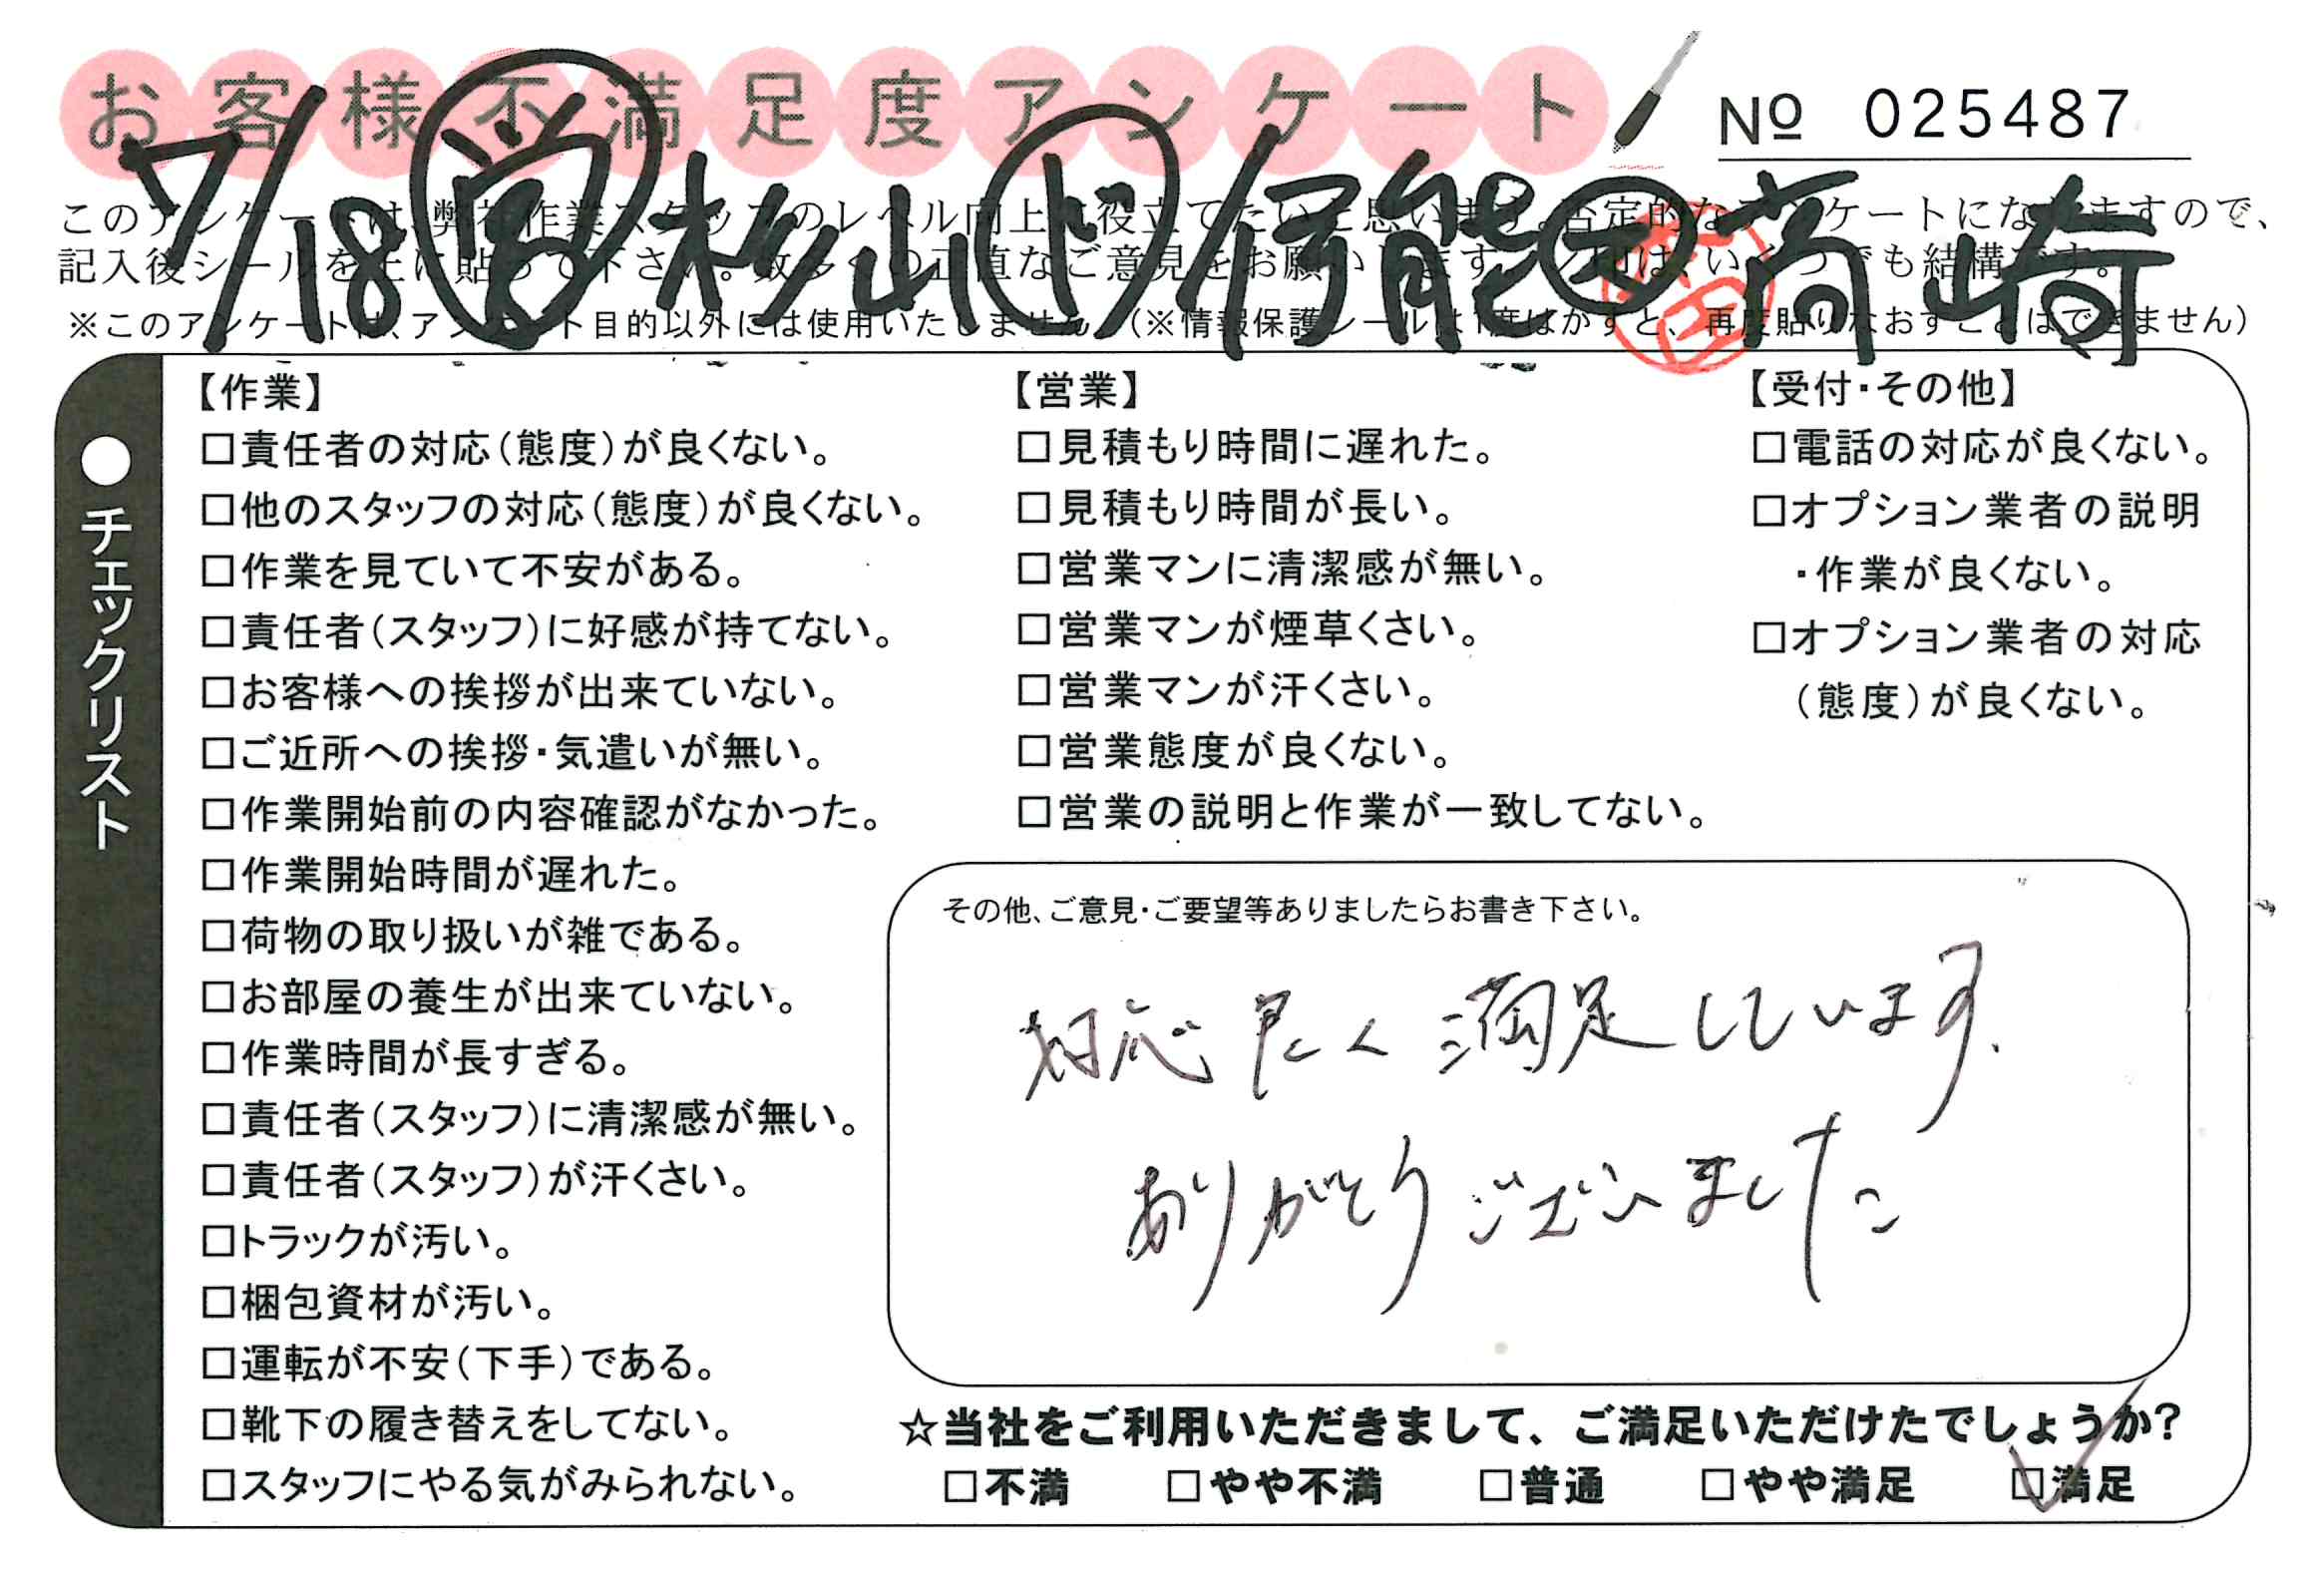 お客様不満足度アンケート
№ 025487
7/18 営 杉山 ド 伊能 高崎
このアンケートは、弊社作業スタッフのレベル向上に役立てたいと思います。否定的なアンケートになりますので、
記入後シールを上に貼って下さい。数多くの正直なご意見をお願いします。✓印は、いくつでも結構です。
※このアンケートは、アンケート目的以外には使用いたしません。(※情報保護シールは1度はがすと、再度貼りなおすことはできません)
●チェックリスト
【作業】
□責任者の対応(態度)が良くない。
□他のスタッフの対応(態度)が良くない。
□作業を見ていて不安がある。
□責任者(スタッフ)に好感が持てない。
□お客様への挨拶が出来ていない。
□ご近所への挨拶・気遣いが無い。
□作業開始前の内容確認がなかった。
□作業開始時間が遅れた。
□荷物の取り扱いが雑である。
□お部屋の養生が出来ていない。
□作業時間が長すぎる。
□責任者(スタッフ)に清潔感が無い。
□責任者(スタッフ)が汗くさい。
□トラックが汚い。
□梱包資材が汚い。
□運転が不安(下手)である。
□靴下の履き替えをしてない。
□スタッフにやる気がみられない。
【営業】
□見積もり時間に遅れた。
□見積もり時間が長い。
□営業マンに清潔感が無い。
□営業マンが煙草くさい。
□営業マンが汗くさい。
□営業態度が良くない。
□営業の説明と作業が一致してない。
【受付・その他】
□電話の対応が良くない。
□オプション業者の説明
・作業が良くない。
□オプション業者の対応
(態度)が良くない。
その他、ご意見・ご要望等ありましたらお書き下さい。
対応良く満足しています.
ありがとうございました
☆当社をご利用いただきまして、ご満足いただけたでしょうか?
□不満 □やや不満 □普通 □やや満足 ☑満足